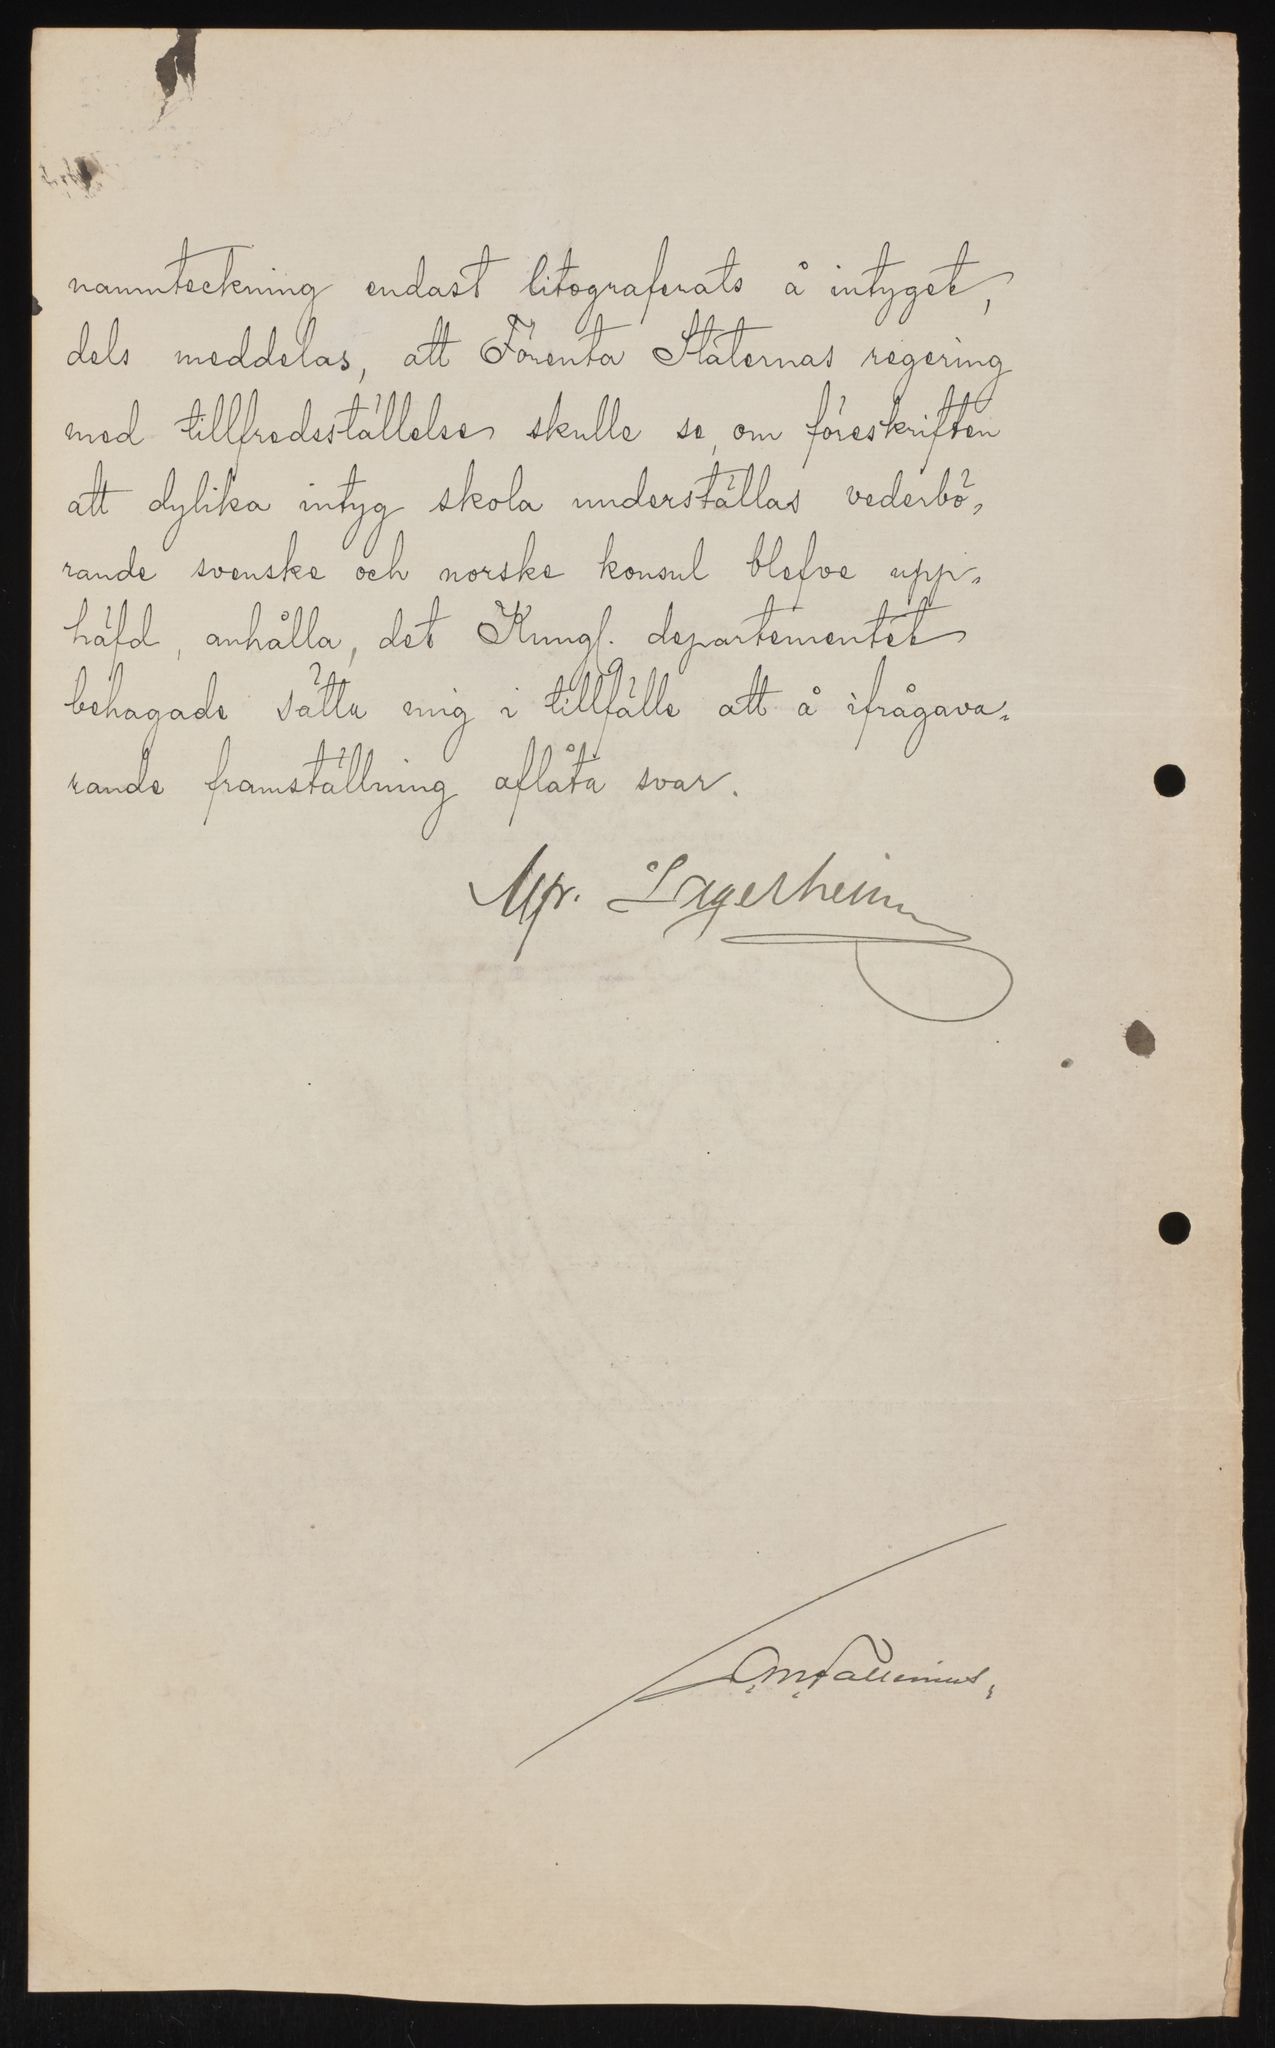 namnteckning endast litograferats å intyget,
dels meddelas, att Förenta Staternas regering
med tillfredsställelse skulle se, om föreskriften
att dylika intyg skola underställas vederbö-
rande svenske och norske konsul blefve upp-
häfd, anhålla, det Kungl. departementet
behagade sätta mig i tillfälle att å ifrågava-
rande framställning aflåta svar.
Lagerheim